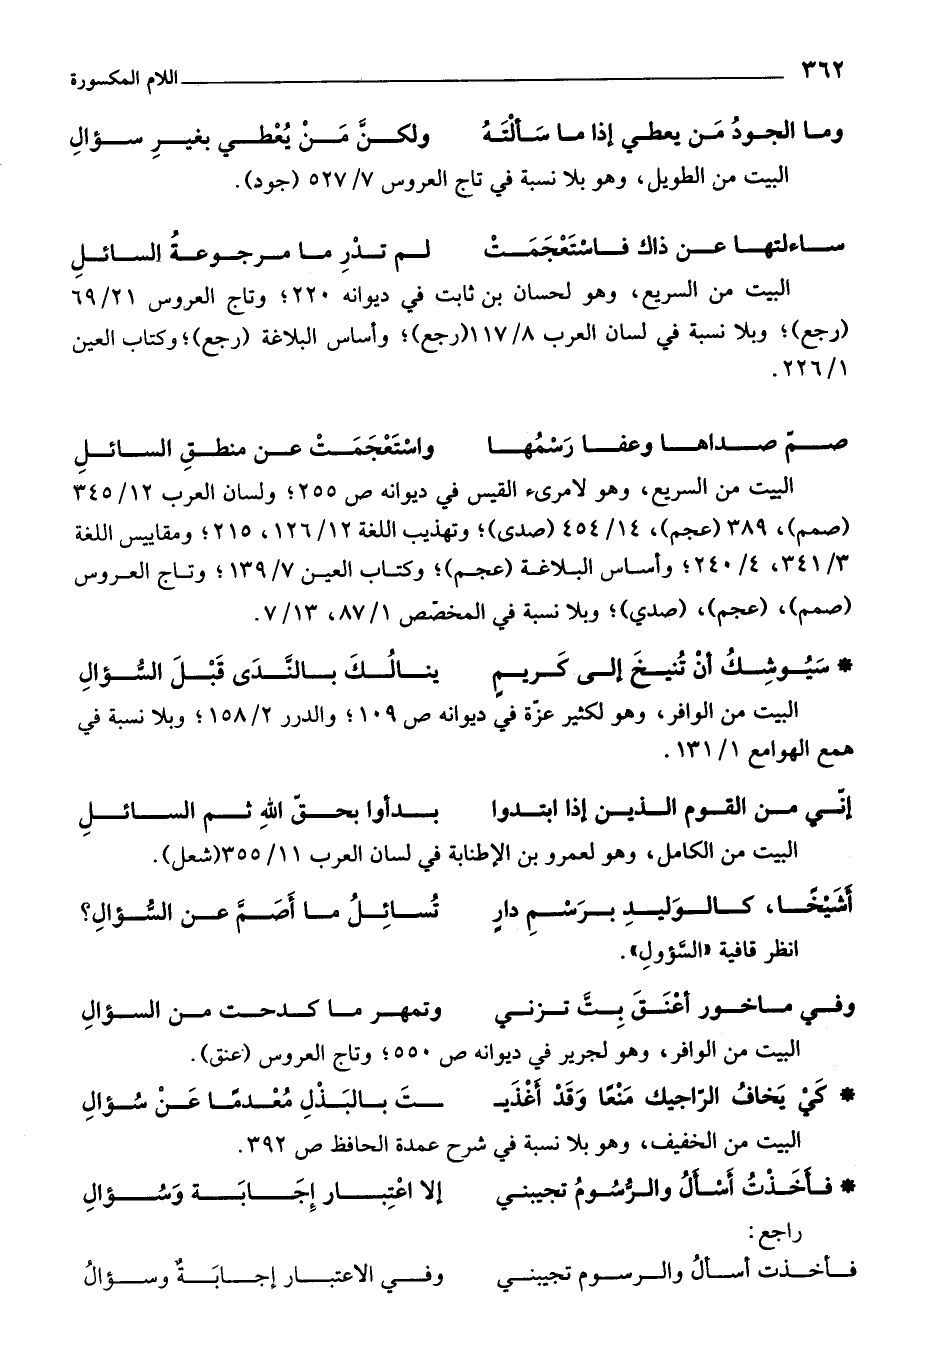 ٣٦٢ اللام المكسورة
وما الجودُ مَن يعطي إذا ما سَألْتَهُ ولكنَّ مَنْ يُعْطي بغيرِ سؤالِ
البيت من الطويل، وهو بلا نسبة في تاج العروس ٧/ ٥٢٧ (جود).
ساءلتها عن ذاك فاسْتَعْجَمَتْ لم تدْرِ ما مرجوعةُ السائلِ
البيت من السريع، وهو لحسان بن ثابت في ديوانه ٢٢٠؛ وتاج العروس ٢١/ ٦٩
(رجع)؛ وبلا نسبة في لسان العرب ٨/ ١١٧(رجع)؛ وأساس البلاغة (رجع)؛ وكتاب العين
١/ ٢٢٦.
صمّ صداها وعفا رَسْمُها واسْتَعْجَمَتْ عن منطقِ السائلِ
البيت من السريع، وهو لامرىء القيس في ديوانه ص ٢٥٥؛ ولسان العرب ١٢/ ٣٤٥
(صمم)، ٣٨٩ (عجم)، ١٤/ ٤٥٤ (صدى)؛ وتهذيب اللغة ١٢/ ١٢٦، ٢١٥؛ ومقاييس اللغة
٣/ ٣٤١، ٤/ ٢٤٠؛ وأساس البلاغة (عجم)؛ وكتاب العين ٧/ ١٣٩؛ وتاج العروس
(صمم)، (عجم)، (صدي)؛ وبلا نسبة في المخصّص ١/ ٨٧، ١٣/ ٧.
* سَيُوشِكُ أنْ تُنيخَ إلى كَريمٍ ينالُكَ بالنَّدَى قَبْلَ السُّؤالِ
البيت من الوافر، وهو لكثير عزّة في ديوانه ص ١٠٩؛ والدرر ٢/ ١٥٨؛ وبلا نسبة في
همع الهوامع ١/ ١٣١.
إنّي من القوم الذين إذا ابتدوا بدأوا بحقّ اللهِ ثم السائلِ
البيت من الكامل، وهو لعمرو بن الإطنابة في لسان العرب ١١/ ٣٥٥(شعل).
أَشَيْخًا، كالوَليدِ برَسْمِ دارٍ تُسائِلُ ما أَصَمَّ عن السُّؤالِ؟
انظر قافية «السَّؤولِ».
وفي ماخور أعْنَقَ بِتَّ تزني وتمهر ما كدحت من السؤالِ
البيت من الوافر، وهو لجرير في ديوانه ص ٥٥٠؛ وتاج العروس (عنق).
* كَيْ يَخافُ الرّاجيك مَنْعًا وَقَدْ أَغْذَيـ ـتَ بالبَذْلِ مُعْدمًا عَنْ سُؤالِ
البيت من الخفيف، وهو بلا نسبة في شرح عمدة الحافظ ص ٣٩٢.
* فأَخَذْتُ أَسْأَلُ والرُّسُومُ تجيبني إلا اعْتِبار إجَابَة وَسُؤالِ
راجع:
فأخذت أسألُ والرسوم تجيبني وفي الاعتبار إجابَةٌ وسؤالُ